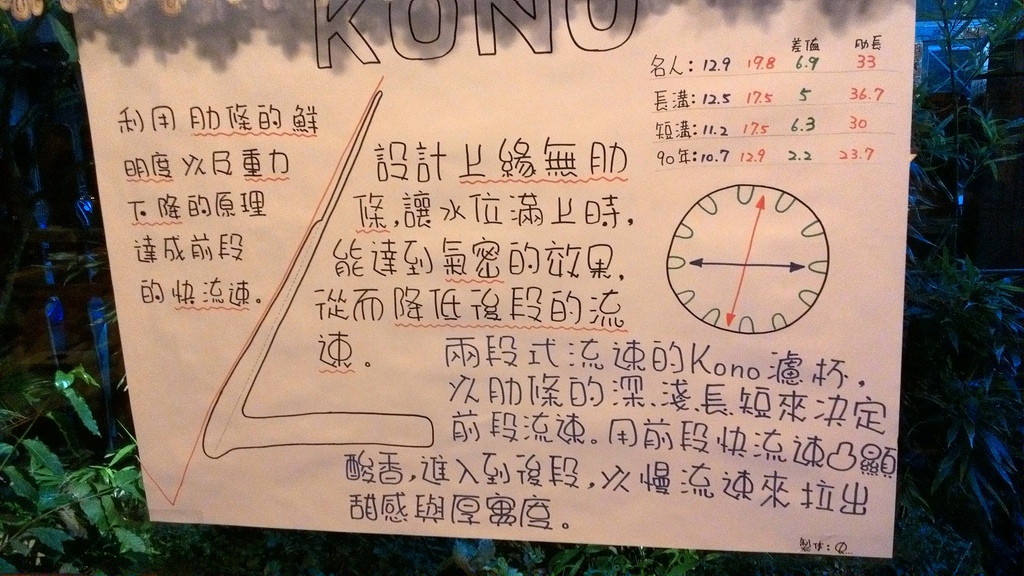 KONO
利用肋條的鮮
明度以及重力
下降的原理
達成前段
的快流速。
設計上緣無肋
條,讓水位滿上時,
能達到氣密的效果,
從而降低後段的流
速。
差值 肋長
名人:12.9 19.8 6.9 33
長溝:12.5 17.5 5 36.7
短溝:11.2 17.5 6.3 30
90年:10.7 12.9 2.2 23.7
兩段式流速的Kono濾杯,
以肋條的深、淺、長、短來決定
前段流速。用前段快流速凸顯
酸香,進入到後段,以慢流速來拉出
甜感與厚實度。